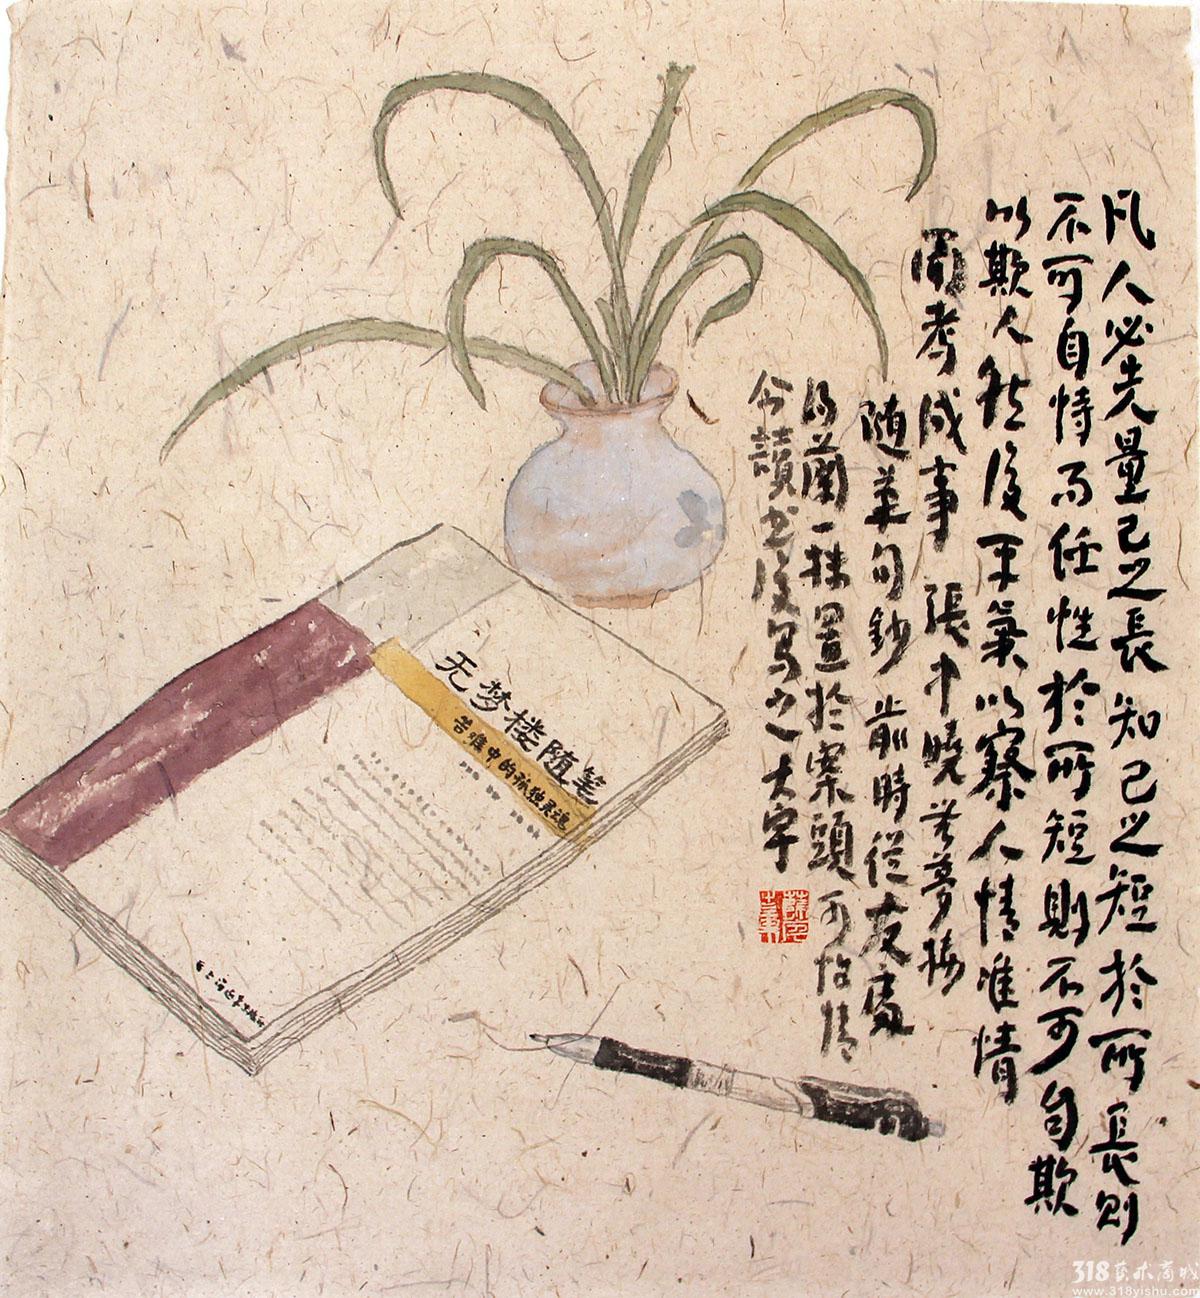 凡人必先量己之長知己之短於所長則
不可自恃而任性於所短則不可自欺
以欺人然後平氣以察人情准情
考成事 張中曉 夢樓
随筆句鈔 前時從友處
得蘭一株置於案頭可怡情
今讀书後写之大宇
无梦楼随笔
苦难中的孤独灵魂
上海远东出版社
318艺术商城
www.318yishu.com